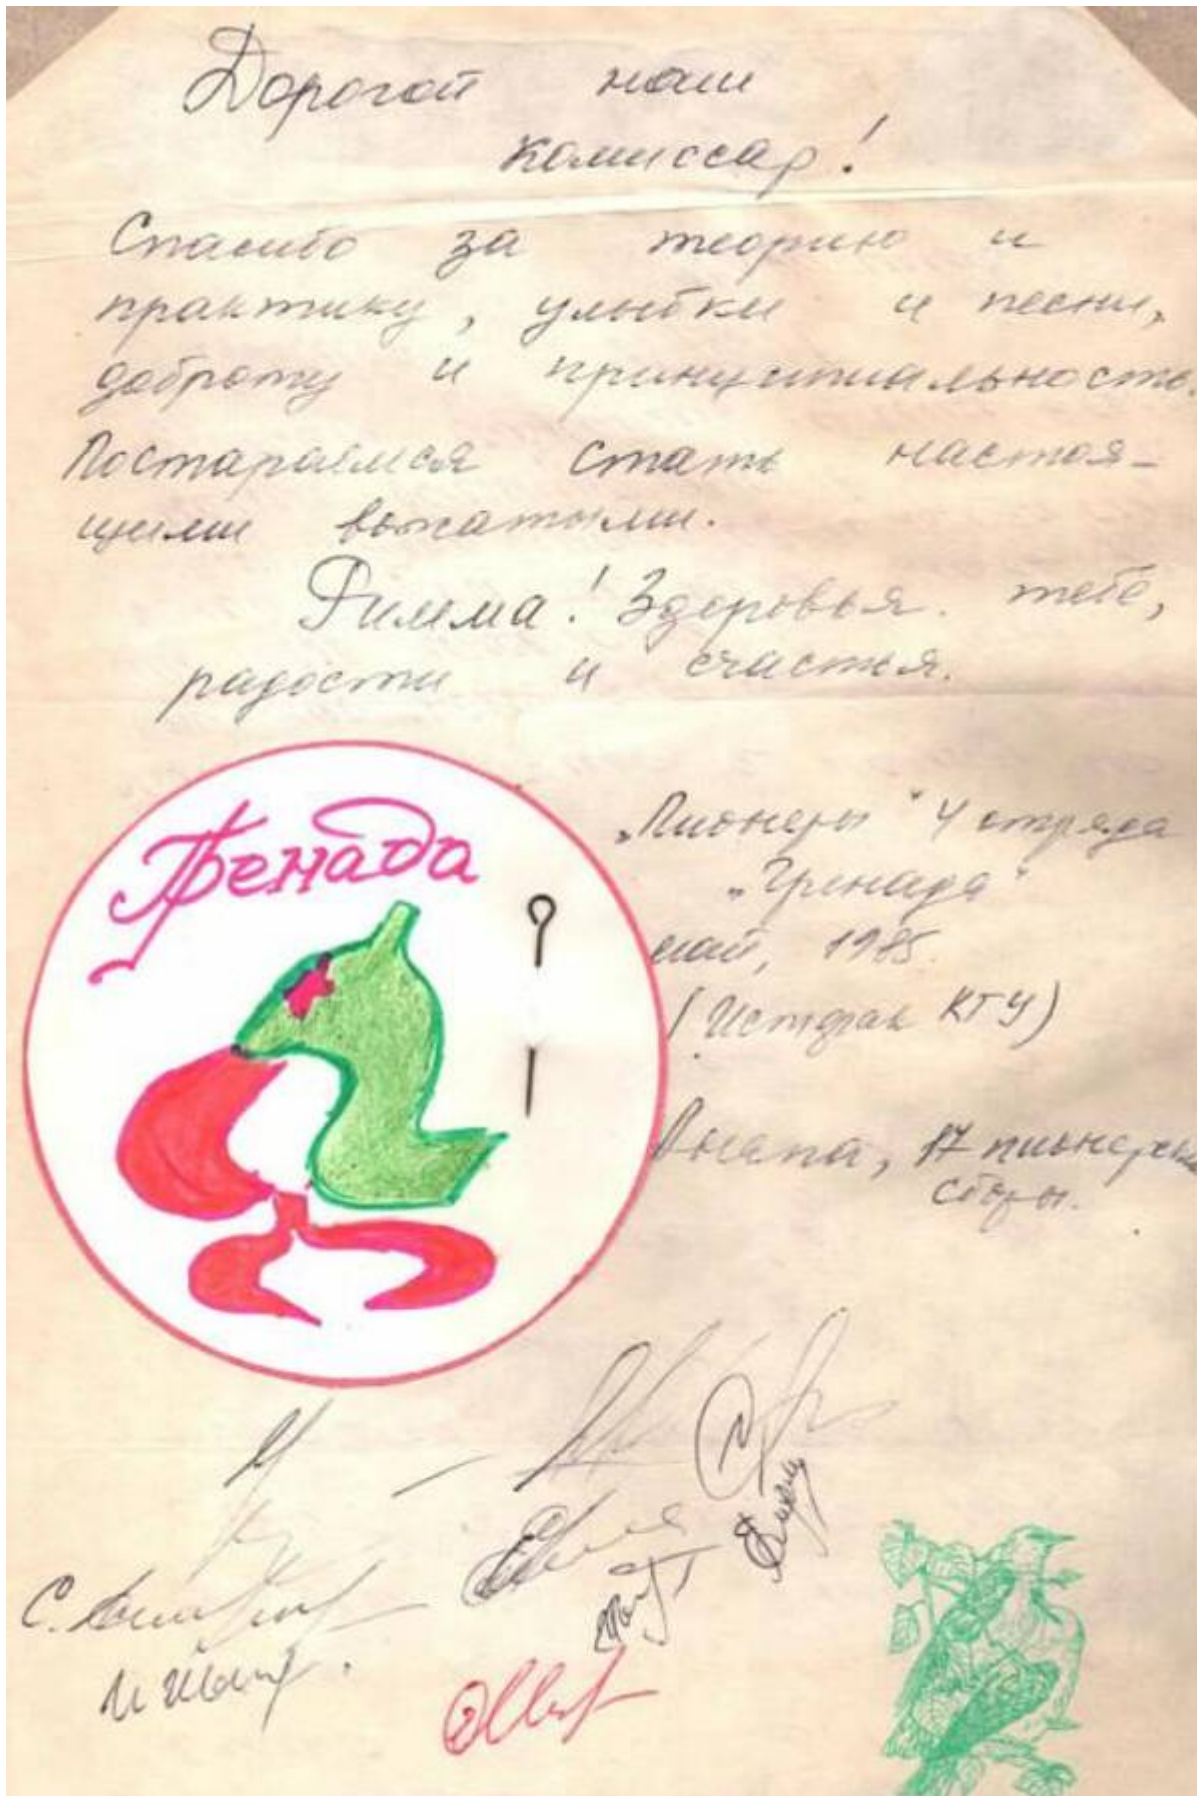 Дорогой наш
комиссар!
Спасибо за теорию и
практику, улыбки и песни,
доброту и принципиальность.
Постараемся стать настоя-
щими вожатыми.
Римма! Здоровья тебе,
радости и счастья.
Гренада
„Пионеры" 4 отряда
„Гренада"
май, 1985.
(Истфак КГУ)
Анапа, 17 пионерские
сборы.